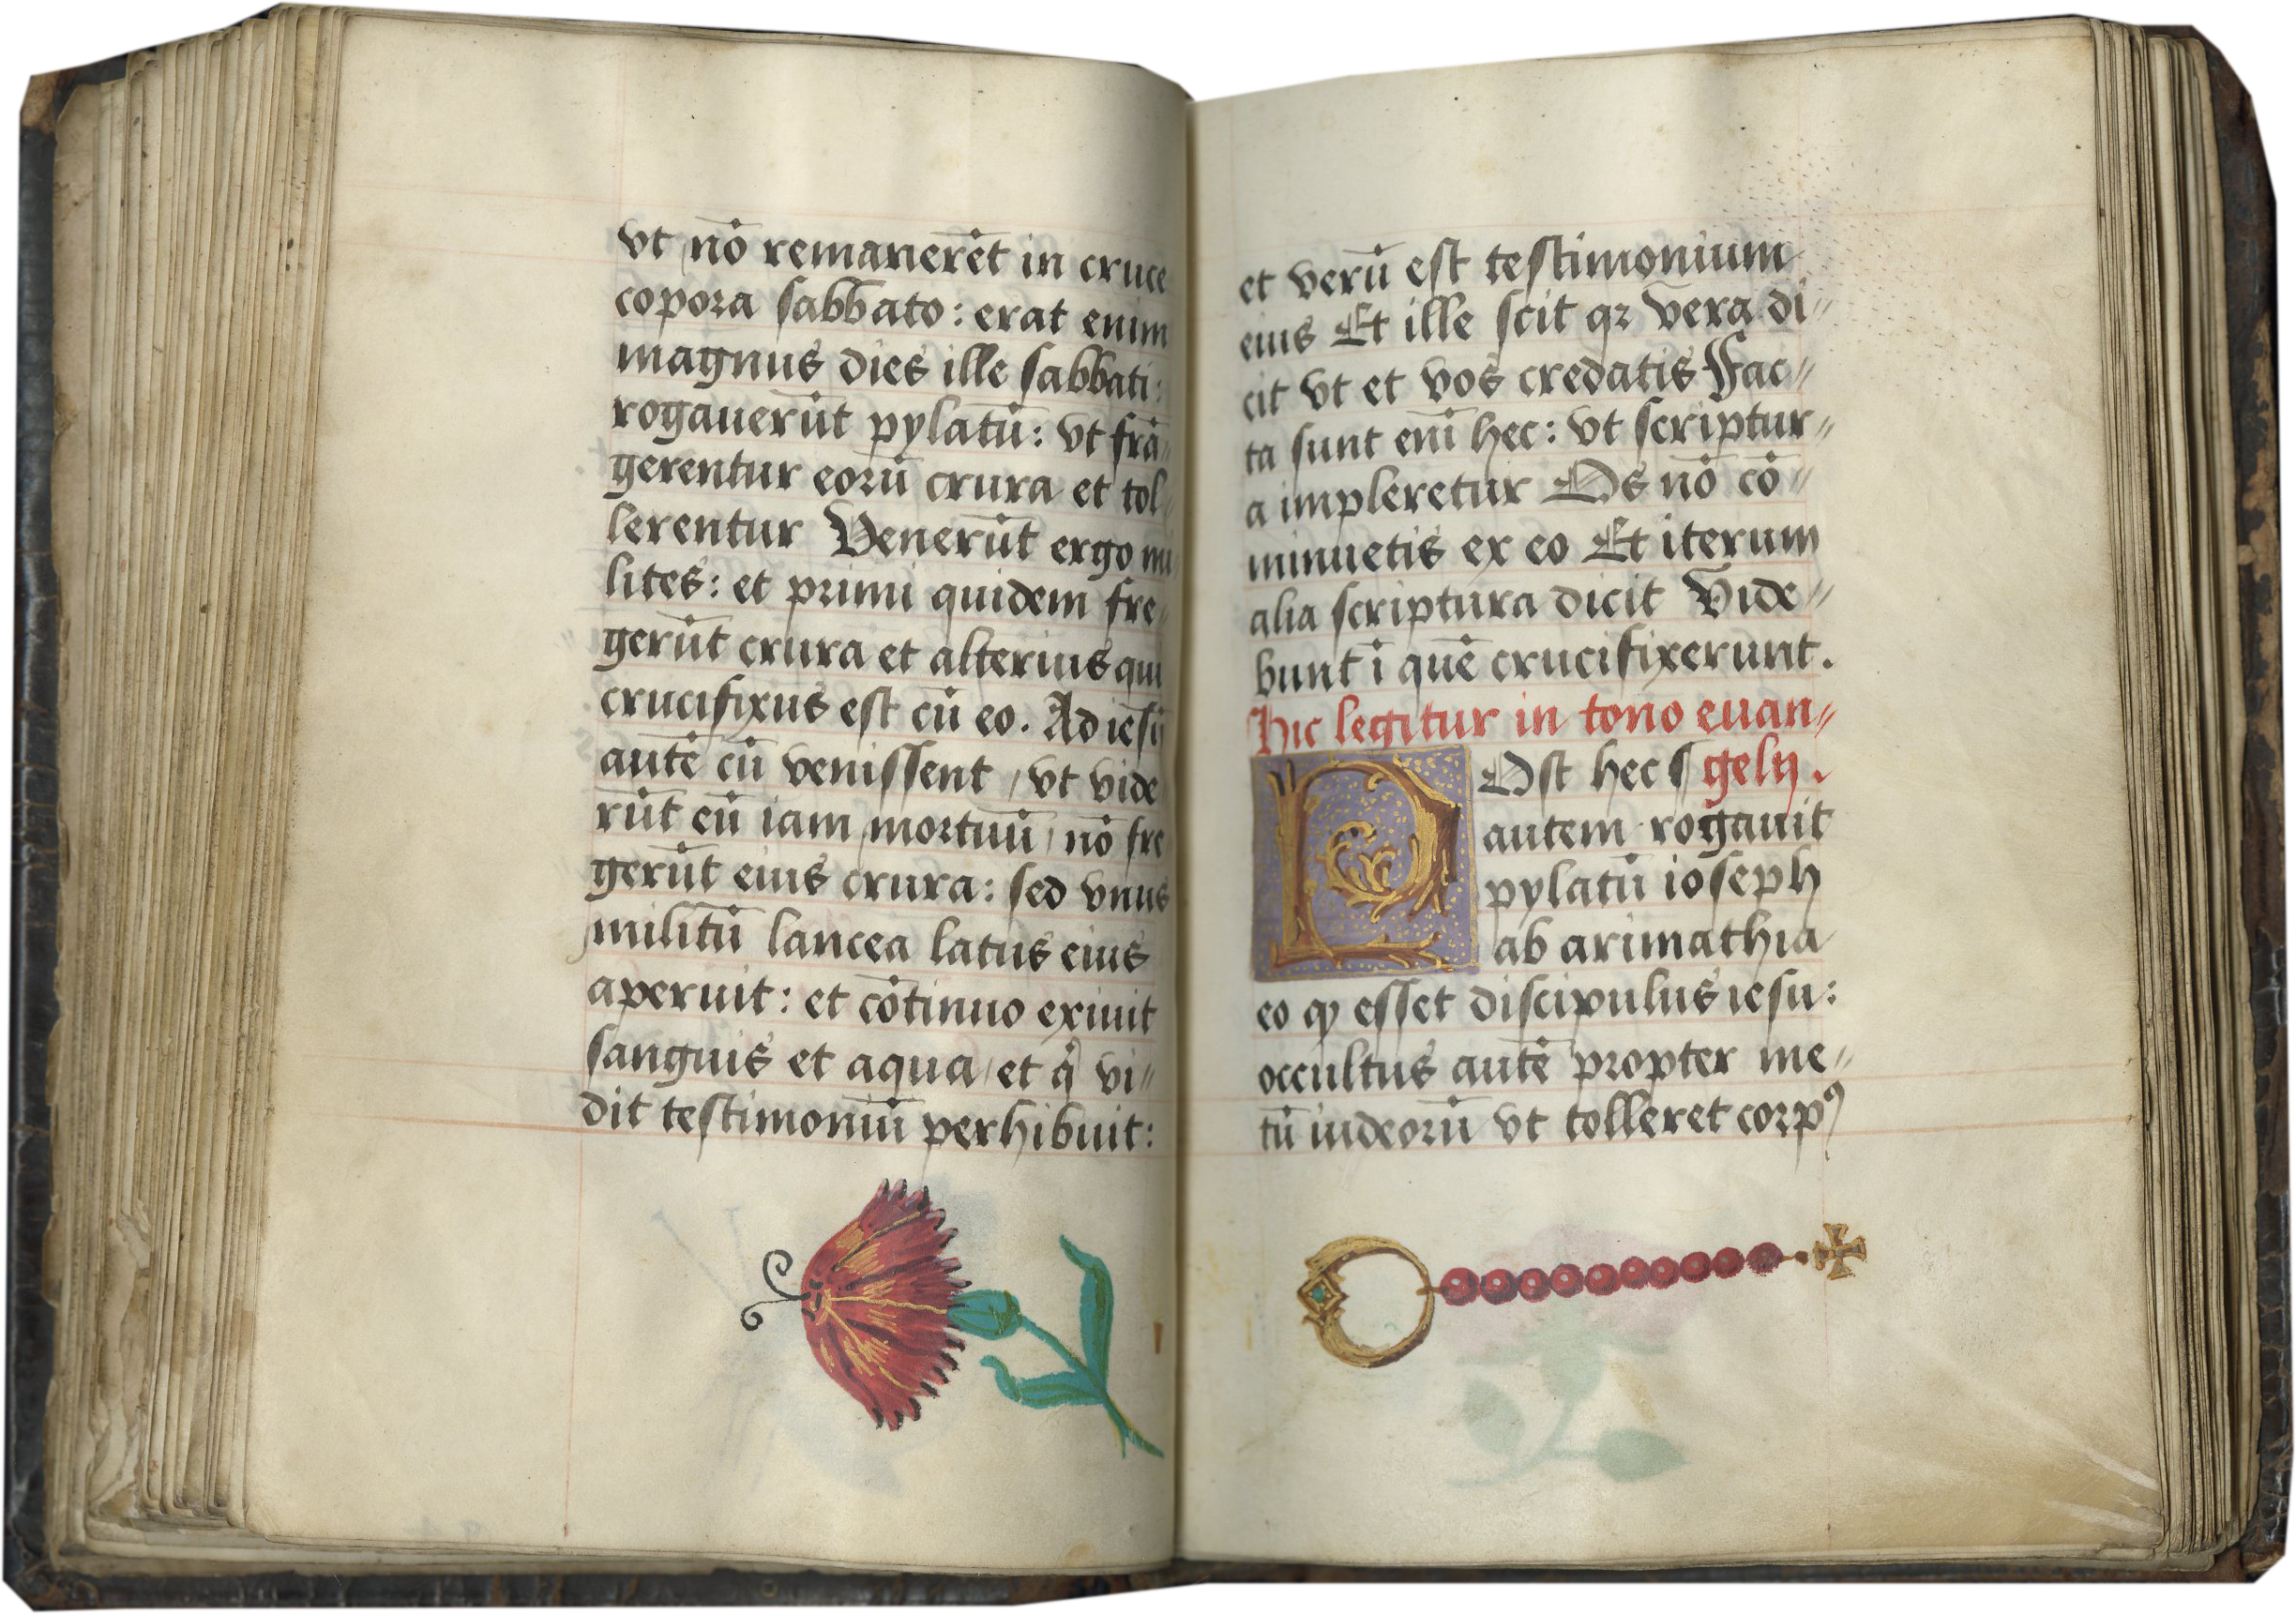 vt nō remanerēt in cruce
copora sabbato: erat enim
magnus dies ille sabbati:
rogauerūt pylatū: vt frā-
gerentur eorū crura et tol-
lerentur Venerūt ergo mi
lites: et primi quidem fre-
gerūt crura et alterius qui
crucifixus est cū eo. Ad iesū
autē cū venissent / vt vide
rūt eū iam mortuū / nō fre
gerūt eius crura: sed vnus
militū lancea latus eius
aperuit: et cōtinuo exiuit
sanguis et aqua / et qͥ vi-
dit testimoniū perhibuit:
et verū est testimonium
eius Et ille scit qꝛ vera di-
cit vt et vos credatis Fac-
ta sunt eni̅ hec: vt scriptur-
a impleretur Os nō cō-
minuetis ex eo Et iterum
alia scriptura dicit Vide-
bunt ī quē crucifixerunt.
Hic legitur in tono euan-
POst hec gelij.
autem rogauit
pylatū ioseph
ab arimathia
eo ꝙ esset discipulus iesu:
occultus autē propter me-
tū iudeorū vt tolleret corpꝰ